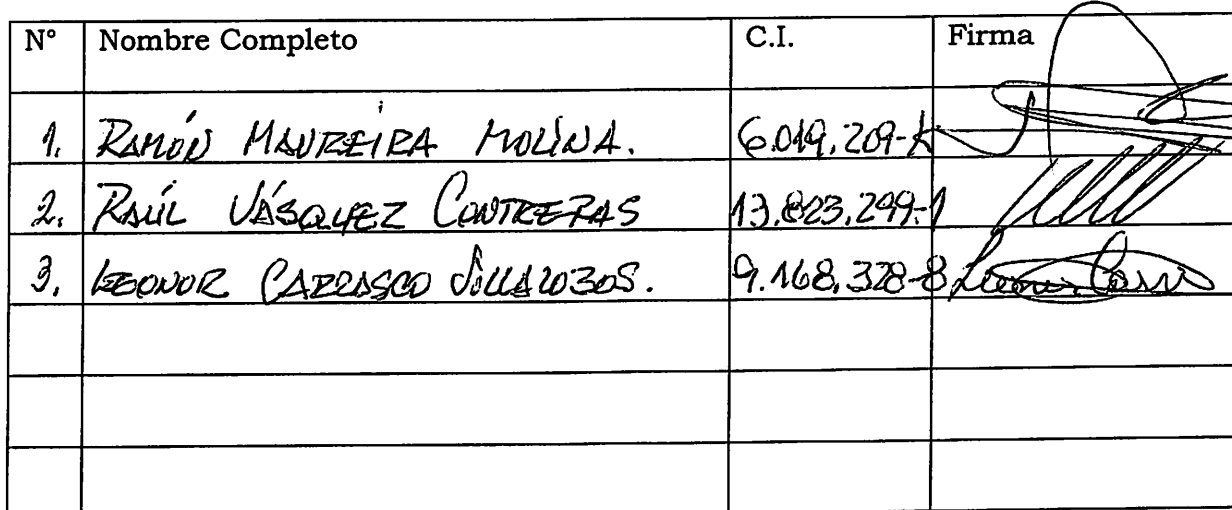 N° Nombre Completo C.I. Firma
1. RAMÓN MAUREIRA MOLINA. 6.019.209-K
2. RAÚL VÁSQUEZ CONTRERAS 13.823.299-1
3. LEONOR CARRASCO VILLALOBOS. 9.168.328-8